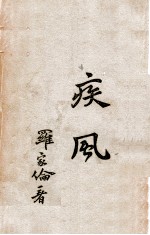 疾風
羅家倫著